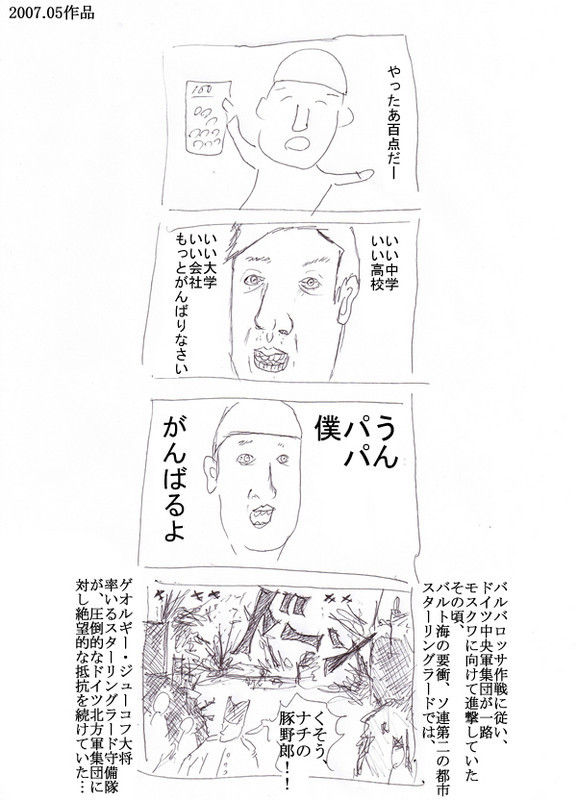 2007.05作品
やったあ百点だー
100
いい中学
いい高校
いい大学
いい会社
もっとがんばりなさい
うん
パパ
僕
がんばるよ
バルバロッサ作戦に従い、
ドイツ中央軍集団が一路
モスクワに向けて進撃していた
その頃、
バルト海の要衝、ソ連第二の都市
スターリングラードでは、
くそう、
ナチの
豚野郎！！
ゲオルギー・ジューコフ大将
率いるスターリングラード守備隊
が、圧倒的なドイツ北方軍集団に
対し絶望的な抵抗を続けていた…